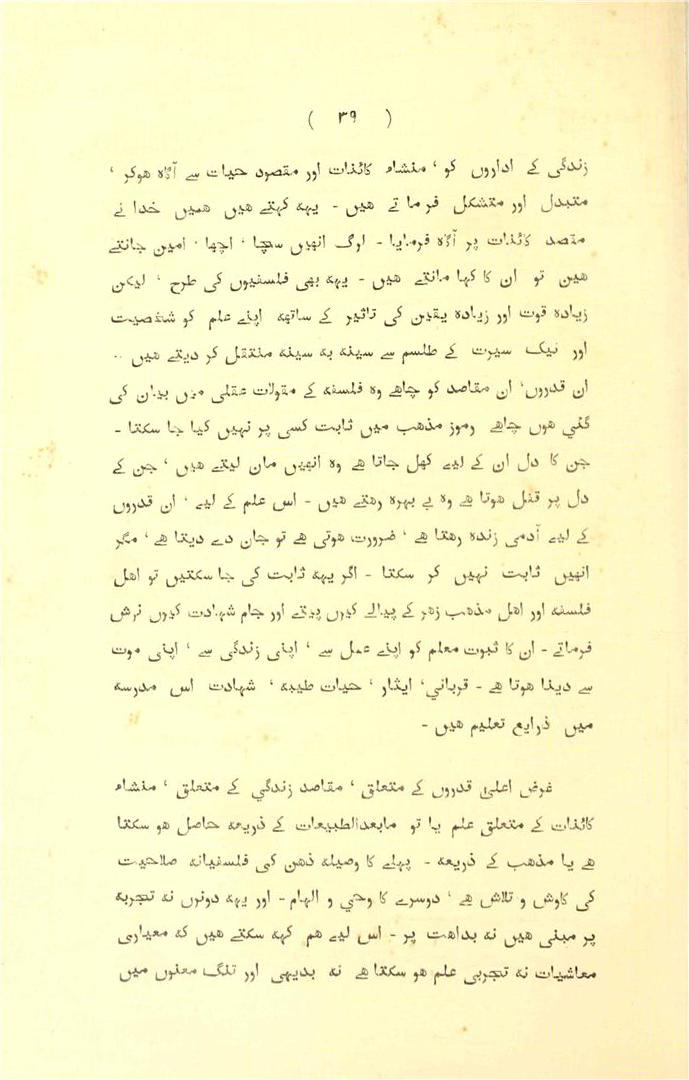 ( ۳۹ )
زندگی کے اداروں کو ' منشاء کائنات اور مقصود حیات سے آگاہ ہوکر '
متبدل اور متشکل فرماتے ہیں - یہہ کہتے ہیں ہمیں خدا نے
مقصد کائنات پر آگاہ فرمایا - لوگ انہیں سچا ' اچھا ' امین جانتے
ہیں تو ان کا کہا مانتے ہیں - یہہ بھی فلسفیوں کی طرح ' لیکن
زیادہ قوت اور زیادہ یقین کی تاثیر کے ساتھہ اپنے علم کو شخصیت
اور نیک سیرت کے طلسم سے سینہ بہ سینہ منتقل کر دیتے ہیں ..
ان قدروں' ان مقاصد کو چاہے وہ فلسفہ کے مقولات عقلی میں بیان کی
گئی ہوں چاہے رموز مذہب میں ثابت کسی پر نہیں کیا جا سکتا -
جن کا دل ان کے لیے کھل جاتا ہے وہ انہیں مان لیتے ہیں ' جن کے
دل پر قفل ہوتا ہے وہ بے بہرہ رہتے ہیں - اس علم کے لیے ' ان قدروں
کے لیے آدمی زندہ رہتا ہے ' ضرورت ہوتی ہے تو جان دے دیتا ہے ' مگر
انہیں ثابت نہیں کر سکتا - اگر یہہ ثابت کی جا سکتیں تو اہل
فلسفہ اور اہل مذہب زہر کے پیالے کیوں پیتے اور جام شہادت کیوں نوش
فرماتے - ان کا ثبوت معلم کو اپنے عمل سے ' اپنی زندگی سے ' اپنی موت
سے دینا ہوتا ہے - قربانی' ایثار ' حیات طیبہ ' شہادت اس مدرسہ
میں ذرایع تعلیم ہیں -
غرض اعلیٰ قدروں کے متعلق ' مقاصد زندگی کے متعلق ' منشاء
کائنات کے متعلق علم یا تو مابعدالطبیعات کے ذریعہ حاصل ہو سکتا
ہے یا مذہب کے ذریعہ - پہلے کا وصیلہ ذہن کی فلسفیانہ صلاحیت
کی کاوش و تلاش ہے ' دوسرے کا وحی و الہام - اور یہہ دونوں نہ تجربہ
پر مبنی ہیں نہ بداہت پر - اس لیے ہم کہہ سکتے ہیں کہ معیاری
معاشیات نہ تجربی علم ہو سکتا ہے نہ بدیہی اور تنگ معنوں میں